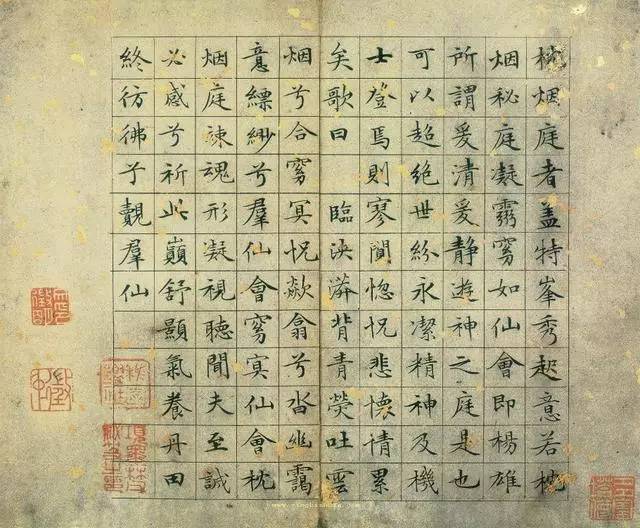 枕烟庭者盖特峯秀起意若枕
烟秘庭凝窅如仙會即楊雄
所謂爰清爰静遊神之庭是也
可以超絶世紛永潔精神及機
士登焉則寥闃惚怳悲懷情累
矣歌曰 臨泱漭背青熒吐雲
烟兮合窅冥怳歘翕兮沓幽靄
意縹緲兮羣仙會窅冥仙會枕
烟庭竦魂形凝視聽聞夫至誠
必感兮祈此巔舒顥氣養丹田
終彷彿予覿羣仙